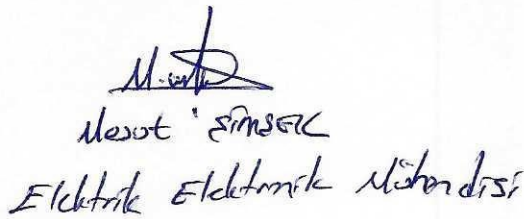 Mesut ŞİMŞEK
Elektrik Elektronik Mühendisi